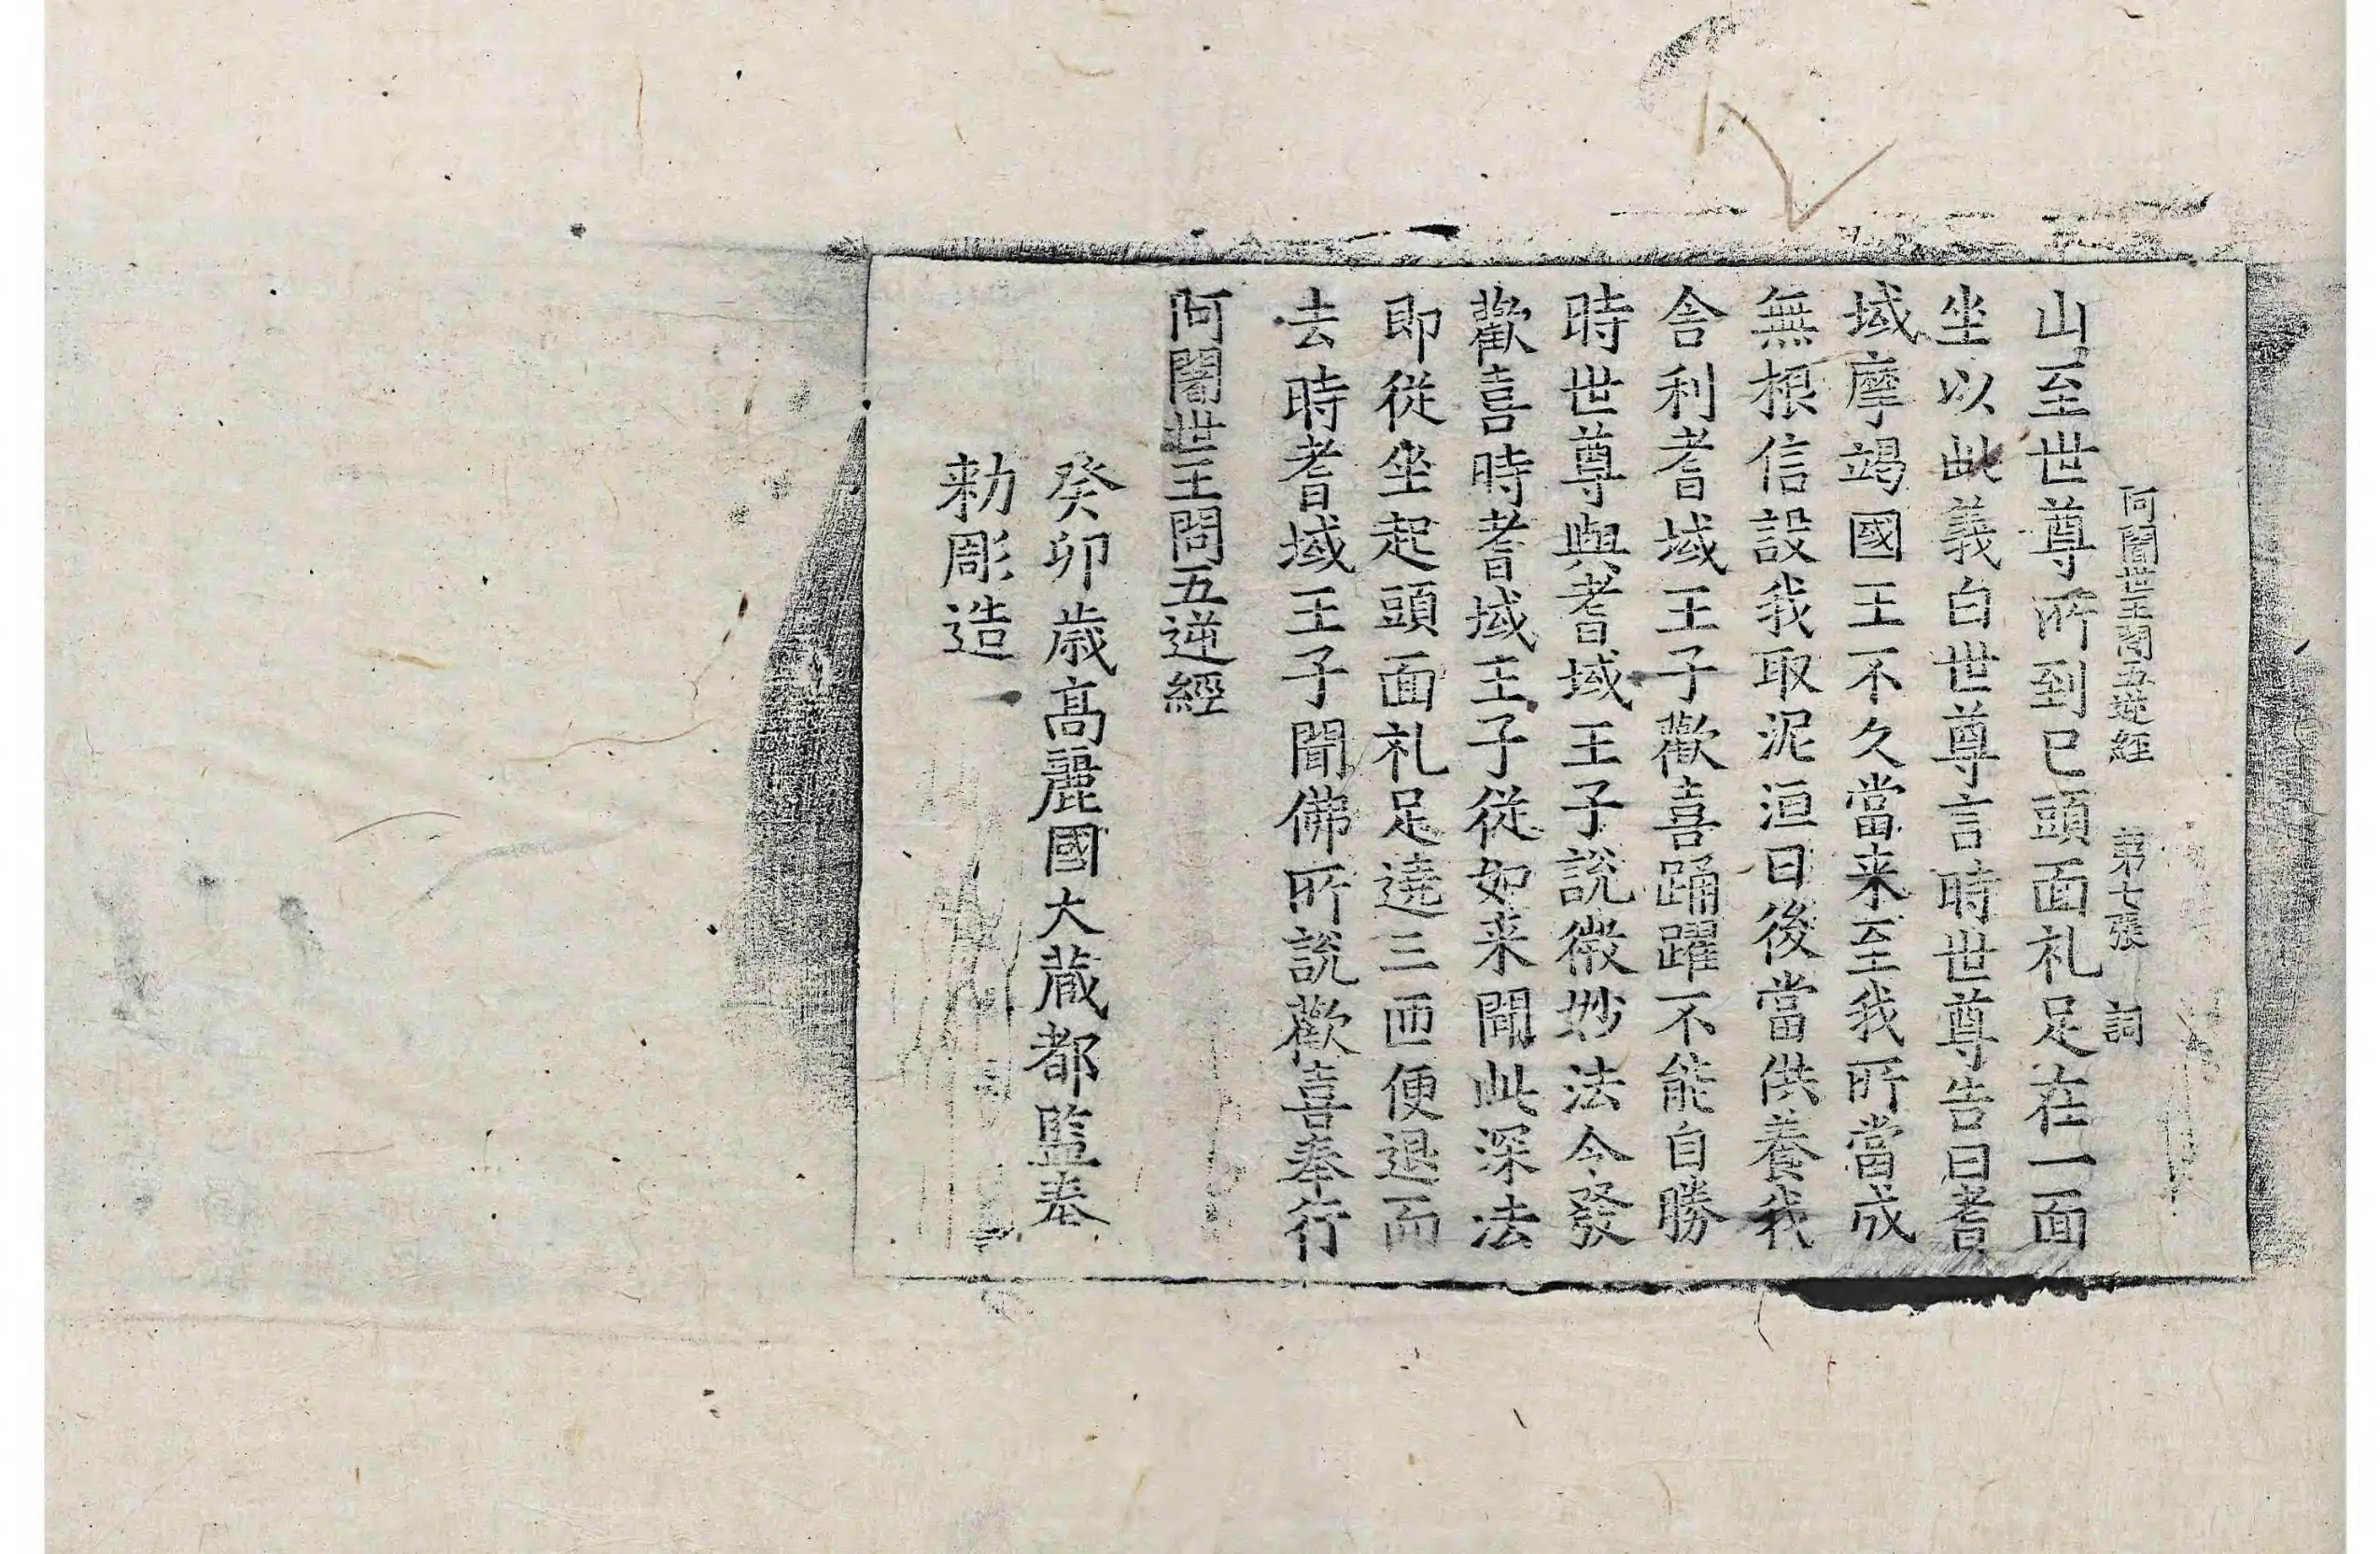 阿闍世王問五逆経　第七張　詞
山至世尊所到已頭面礼足在一面
坐以此義白世尊言時世尊告曰耆
域摩竭國王不久當来至我所當成
無根信設我取泥洹曰後當供養我
舍利耆域王子歡喜踊躍不能自勝
時世尊與耆域王子說微妙法令發
歡喜時耆域王子從如来聞此深法
即從坐起頭面礼足遶三匝便退而
去時耆域王子聞佛所說歡喜奉行
阿闍世王問五逆經
癸卯歳高麗國大蔵都監奉
勑彫造